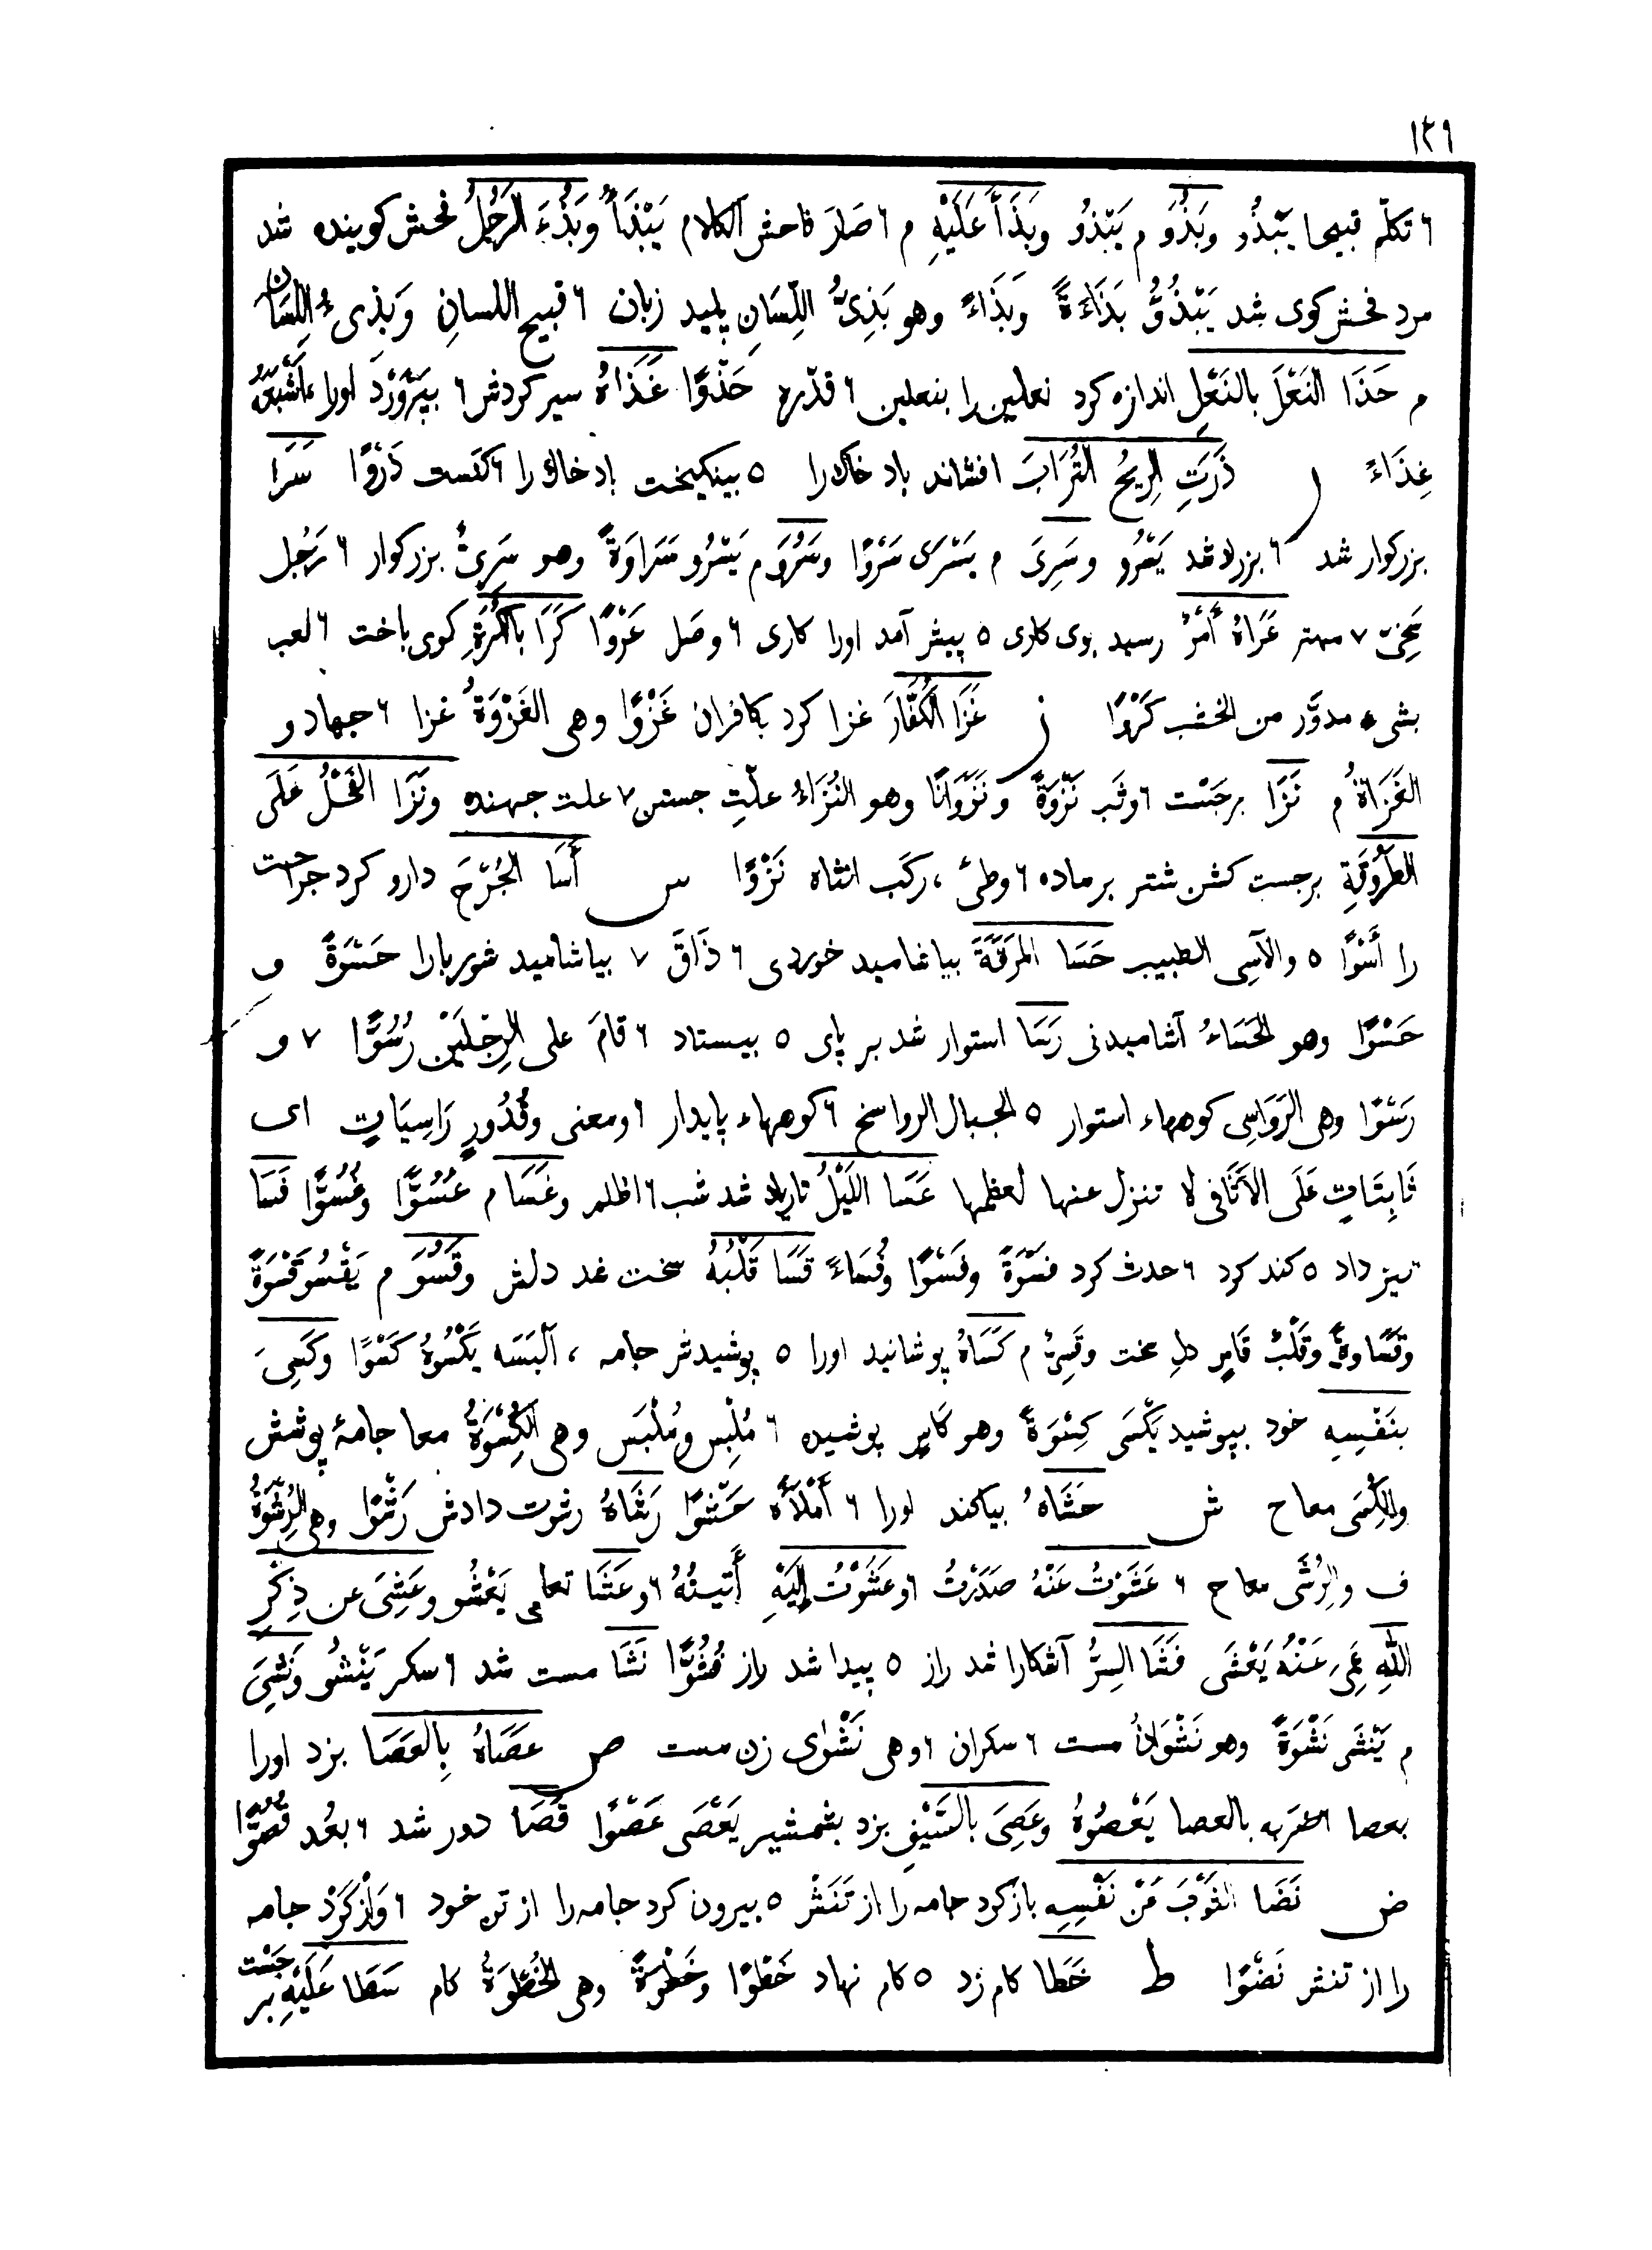 ١٣٩
٦ تكلّم قبيحا يَبْذُو وبَذُوَ م يَبْذُو وبَذَأَ عَلَيْهِ م ٦ صَارَ فاحش الكلام يَبْذَأُ وبَذُءَ الرَجُلُ فحش كوينده شد
مرد فحش كوى شد يَبْذُؤُ بَذَاءَةً وبَذَاءً وهو بَذِىُّ اللِّسَانِ پليد زبان ٦ قبيح اللسانِ وَبَذِىءُ اللِّسَانِ
م حَذَا النَعْلَ بالنَعْلِ اندازه كرد نعلين را بنعلين ٦ قدّره حَذْوًا غَذَاهُ سير كردش ٦ بپَرْوَرْدَ اورا
غِذَاءً ر ذَرَتِ الرِيحُ التُرَابَ افشاند باد خاك را ٥ ببيكيخت باد خاك را ٦ كنست ذَرْوًا سَرَا
بزركوار شد ٦ بزرك شد يَسْرُو وسَرِىَ م يَسْرَى سَرْوًا وسَرُوَ م يَسْرُو سَرَاوَةً وهو سَرِىٌّ بزركوار ٦ رَجُل
سَخِىّ ٧ مهتر عَرَاهُ أَمْرٌ رسيد بوى كارى ٥ پيش آمد اورا كارى ٦ وصَل عَرْوًا كَرَا بالكُرَةِ كوى باخت ٦ لعب
بشىء مدوَّر من الخشب كَرْوًا ز غَزَا الكُفَّارَ غزا كرد بكافران غَزْوًا وهى الغَزْوَةُ غزا ٦ جهاد و
الغَزَاةُ م نَزَا برجَسْت ٦ وثَب نَزْوَةً ونَزَوَانًا وهو النُزَاءُ علّتِ جستن ٧ علت جهنده ونَزَا الفَحْلُ عَلَى
الطَرُوقَةِ برجست كشن شتر بر ماده ٦ وطئ ، ركَب انثاه نَزْوًا س أَسَا الجُرْحَ دارو كرد جراحت
را أَسْوًا ٥ والآسِى الطبيب حَسَا المَرَقَةَ بياشاميد خوردى ٦ ذَاقَ ٧ بياشاميد شوربارا حَسْوَةً و
حَسْوًا وهو الحَسَاءُ آشاميدنى رَسَا استوار شد بر پاى ٥ بيستاد ٦ قامَ على الرِجْلَيْنِ رُسُوًّا ٧ و
رَسْوًا وهى الرَوَاسِى كوههاء استوار ٥ الجبال الرواسخ ٦ كوههاء پايدار ٦ ومعنى وقُدُورٍ رَاسِيَاتٍ اى
ثَابِتَاتٍ عَلَى الأَثَافى لا تنزل عنها لعظمها عَسَا اللَيْلُ تاريك شد شب ٦ اظلم وغَسَا م عُسُوًّا وغُسُوًّا فَسَا
تيز داد ٥ كند كرد ٦ حدث كرد فَسْوَةً وفَسْوًا وفُسَاءً قَسَا قَلْبُهُ سخت شد دلش وقَسُوَ م يَقْسُو قَسْوَةً
وقَسَاوةً وقَلْبٌ قَاسٍ دلِ سخت وقَسِىٌّ م كَسَاهُ پوشانيد اورا ٥ پوشيدش جامه ، اَلبَسَه يَكْسُوهُ كَسْوًا وكَسِىَ
بنَفْسِهِ خود بپوشيد يَكْسَى كِسْوَةً وهو كَاسٍ پوشيده ٦ مُلْبِس ومُلْبَس وهى الكِسْوَةُ معا جامهٔ پوشش
والكِسَى معا ح ش حَشَاهُ بياكند اورا ٦ أَمْلَأَه حَشْوًا رَشَاهُ رشوت دادش رَشْوًا وهى الرِشْوَةُ
ف والرُشَى معا ح ٦ عَشَوْتُ عَنْهُ صَدَرْتُ ٦ وعَشَوْتُ إِلَيْهِ أَتيتُهُ ٦ وعَشَا تعامى يَعْشُو وعَشِىَ عن ذِكْرِ
اللّٰهِ عَمِىَ عَنْهُ يَعْشَى فَشَا السِرُّ آشكارا شد راز ٥ پيدا شد راز فُشُوًّا نَشَا مست شد ٦ سكر يَنْشُو ونَشِىَ
م يَنْشَى نَشْوَةً وهو نَشْوَانُ مست ٦ سكران ٦ وهى نَشْوٰى زن مست ص عَصَاهُ بِالعَصَا بزد اورا
بعصا ٦ ضربه بالعصا يَعْصُوهُ وعَصِىَ بالسَيْفِ بزد بشمشير يَعْصَى عَصْوًا قَصَا دور شد ٦ بعُد قُصُوًّا
ض نَضَا الثَوْبَ عَنْ نَفْسِهِ بازكرد جامه را از تَنَشْ ٥ بيرون كرد جامه را از تن خود ٦ وَازْكَرَدْ جامه
را از تنش نَضْوًا ط خَطَا كام زد ٥ كام نهاد خَطْوًا وخَطْوَةً وهى الخُطْوَةُ كام سَطَا عَلَيْهِ بر جَسْت